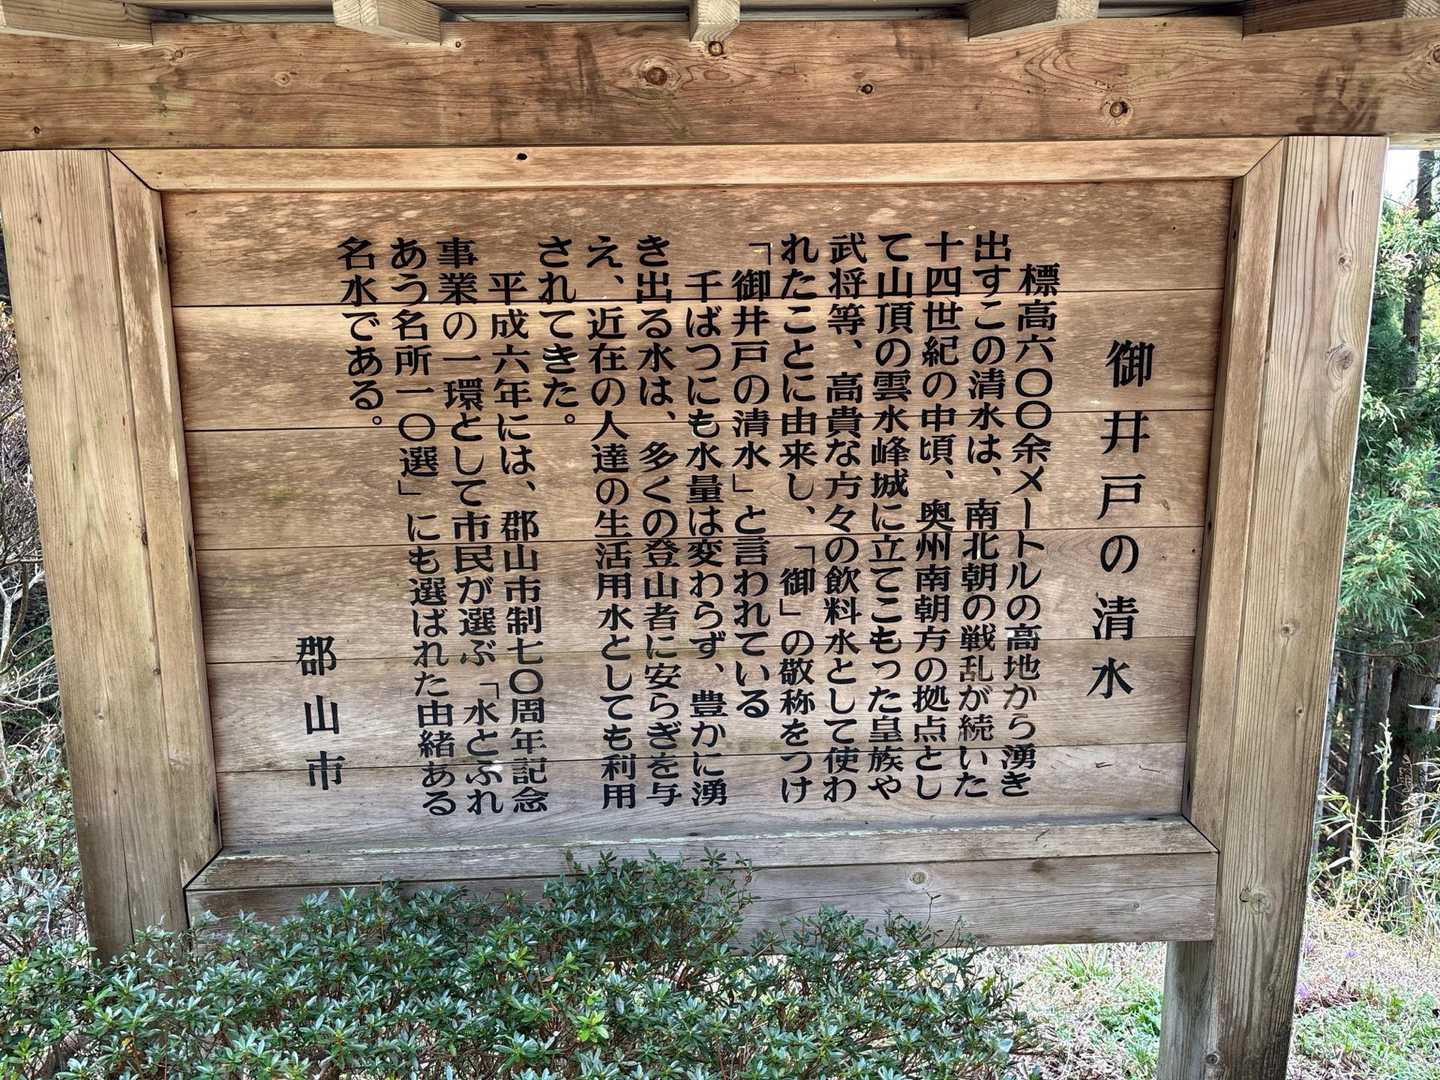 御井戸の清水
標高六〇〇余メートルの高地から湧き
出すこの清水は、南北朝の戦乱が続いた
十四世紀の中頃、奥州南朝方の拠点とし
て山頂の雲水峰城に立てこもった皇族や
武将等、高貴な方々の飲料水として使わ
れたことに由来し、「御」の敬称をつけ
「御井戸の清水」と言われている
千ばつにも水量は変わらず、豊かに湧
き出る水は、多くの登山者に安らぎを与
え、近在の人達の生活用水としても利用
されてきた。
平成六年には、郡山市制七〇周年記念
事業の一環として市民が選ぶ「水とふれ
あう名所一〇選」にも選ばれた由緒ある
名水である。
郡山市